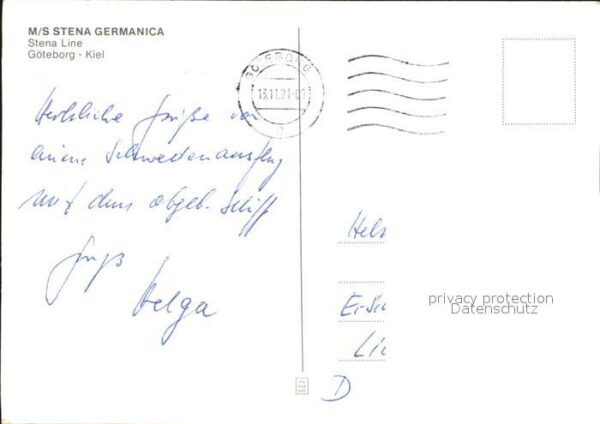 M/S STENA GERMANICA
Stena Line
Göteborg - Kiel
GÖTEBORG
13.11.91
Herzliche Grüße von
einem Schwedenausflug
mit dem abgeb. Schiff
Gruß
Helga
privacy protection
Datenschutz
D